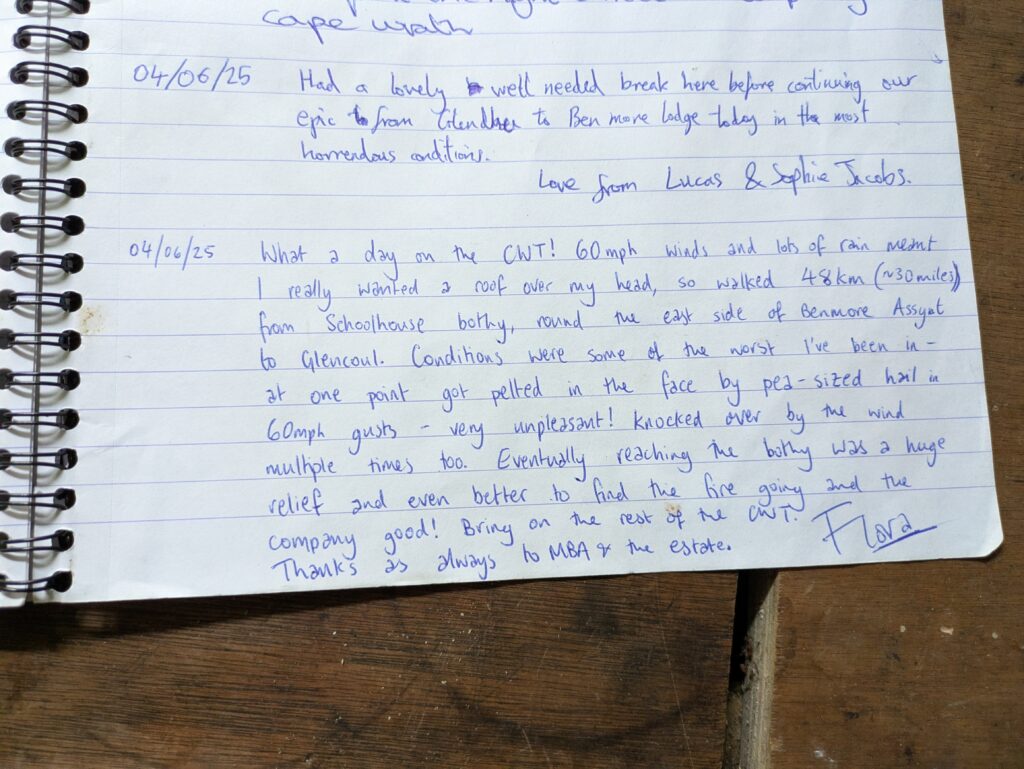 cape wrath
04/06/25 Had a lovely well needed break here before continuing our
epic from to Ben more lodge today in the most
horrendous conditions.
Love from Lucas & Sophie Jacobs.
04/06/25 What a day on the CWT! 60mph winds and lots of rain meant
I really wanted a roof over my head, so walked 48km (~30miles)
from Schoolhouse bothy, round the east side of Benmore Assynt
to Glencoul. Conditions were some of the worst I've been in -
at one point got pelted in the face by pea-sized hail in
60mph gusts - very unpleasant! Knocked over by the wind
multiple times too. Eventually reaching the bothy was a huge
relief and even better to find the fire going and the
company good! Bring on the rest of the CWT!
Thanks as always to MBA & the estate.
Flora